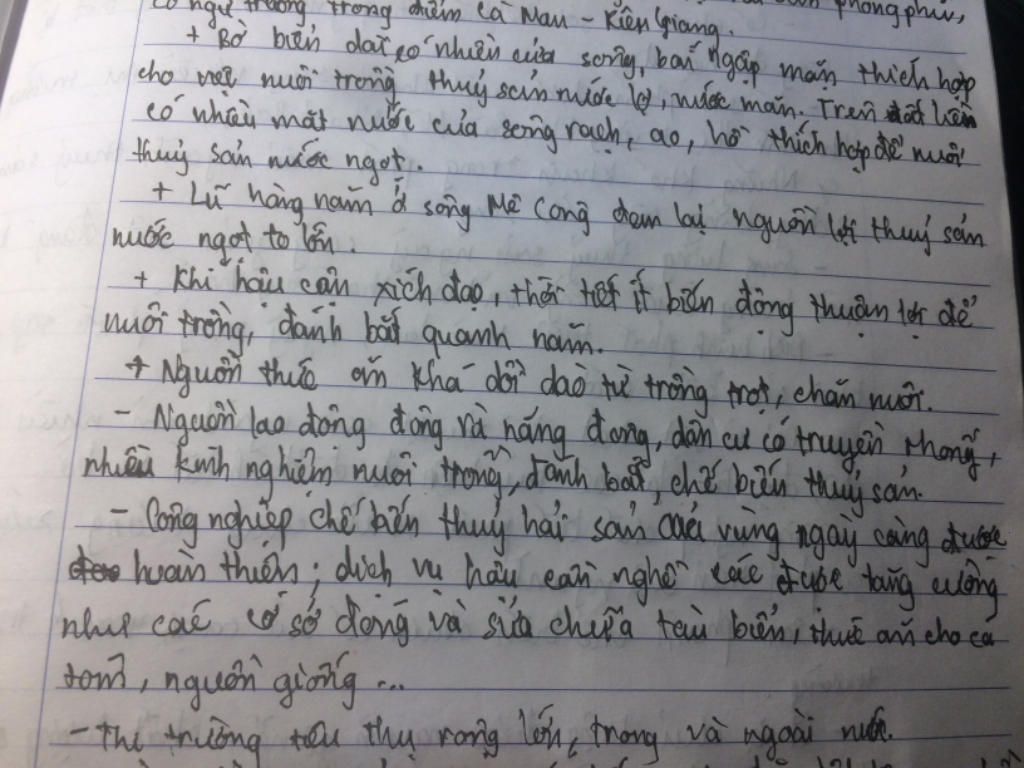 có ngư trường trọng điểm Cà Mau - Kiên Giang.
+ Bờ biển dài có nhiều cửa sông, bãi ngập mặn thích hợp
cho việc nuôi trồng thuỷ sản nước lợ, nước mặn. Trên đất liền
có nhiều mặt nước của sông rạch, ao, hồ thích hợp để nuôi
thuỷ sản nước ngọt.
+ Lũ hàng năm ở sông Mê Công đem lại nguồn lợi thuỷ sản
nước ngọt to lớn.
+ Khí hậu cận xích đạo, thời tiết ít biến động thuận lợi để
nuôi trồng, đánh bắt quanh năm.
+ Nguồn thức ăn khá dồi dào từ trồng trọt, chăn nuôi.
- Nguồn lao động đông và năng động, dân cư có truyền thống,
nhiều kinh nghiệm nuôi trồng, đánh bắt, chế biến thuỷ sản.
- Công nghiệp chế biến thuỷ hải sản của vùng ngày càng được
hoàn thiện; dịch vụ hậu cần nghề cá được tăng cường
như các cơ sở đóng và sửa chữa tàu biển, thức ăn cho cá
tôm, nguồn giống...
- Thị trường tiêu thụ rộng lớn, trong và ngoài nước.